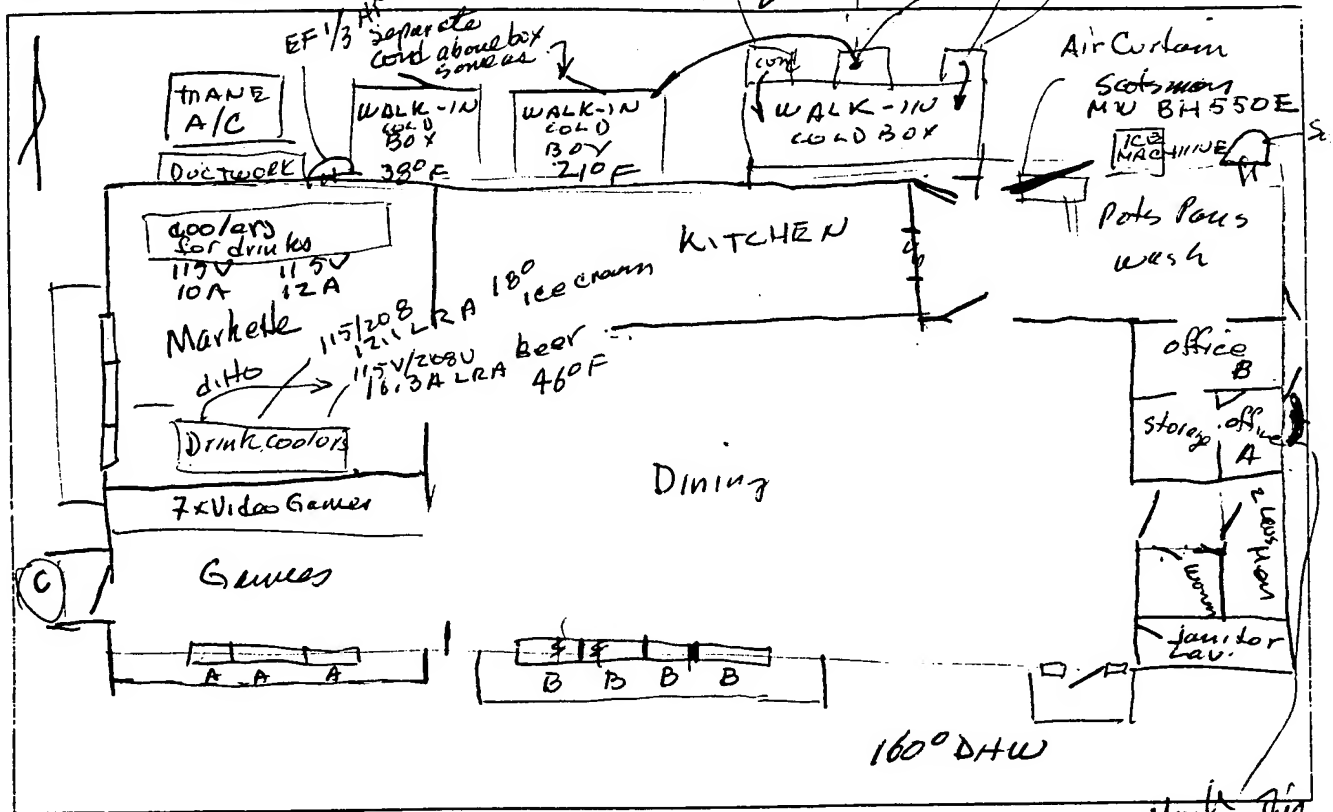 EF 1/3 HP
separate
cond above box
same as
TRANE
A/C
DUCTWORK
WALK-IN
COLD
BOX
38°F
WALK-IN
COLD
BOX
210F
cond
WALK-IN
COLD BOX
Air Curtain
Scotsman
BH550E
ICE
MACHINE
Pots Pans
wash
KITCHEN
coolers
for drinks
115V 115V
10A 12A
115/208
12.1 LRA
180
ice cream
Markette
ditto
115V/208V
16.3A LRA
Beer
46°F
Drink coolors
7xVideo Games
Games
C
Dining
office
B
storage
office
A
women
janitor
Lav.
A A A
B B B B
160° DHW